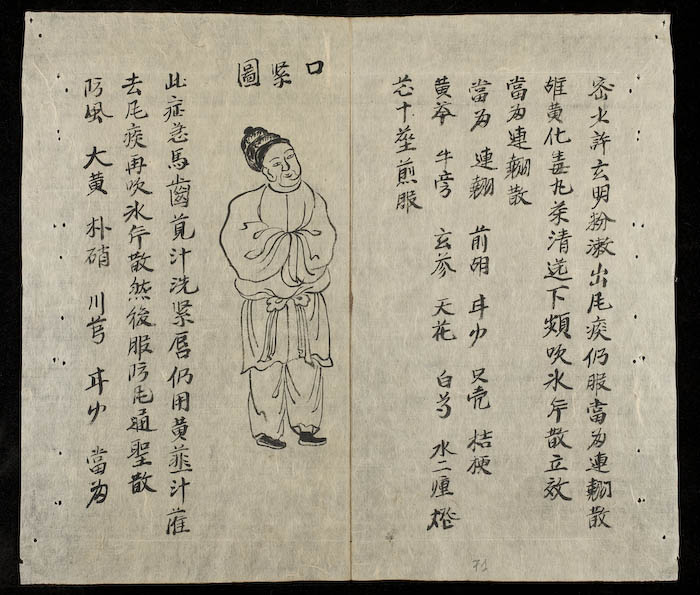 密少許玄明粉漱出痰仍服當为連翹散
雄黄化毒丸茶清送下頻吹氷片散立效
當为連翹散
當为 連翹 前胡 甘少 只壳 桔梗
黄芩 牛旁 玄參 天花 白芍 水二 燈
芯十莖煎服
口紧圖
此症急馬齒莧汁洗紧唇仍用黄虀汁灌
去痰再吹氷片散然後服防通聖散
防風 大黄 朴硝 川芎 甘少 當为
71